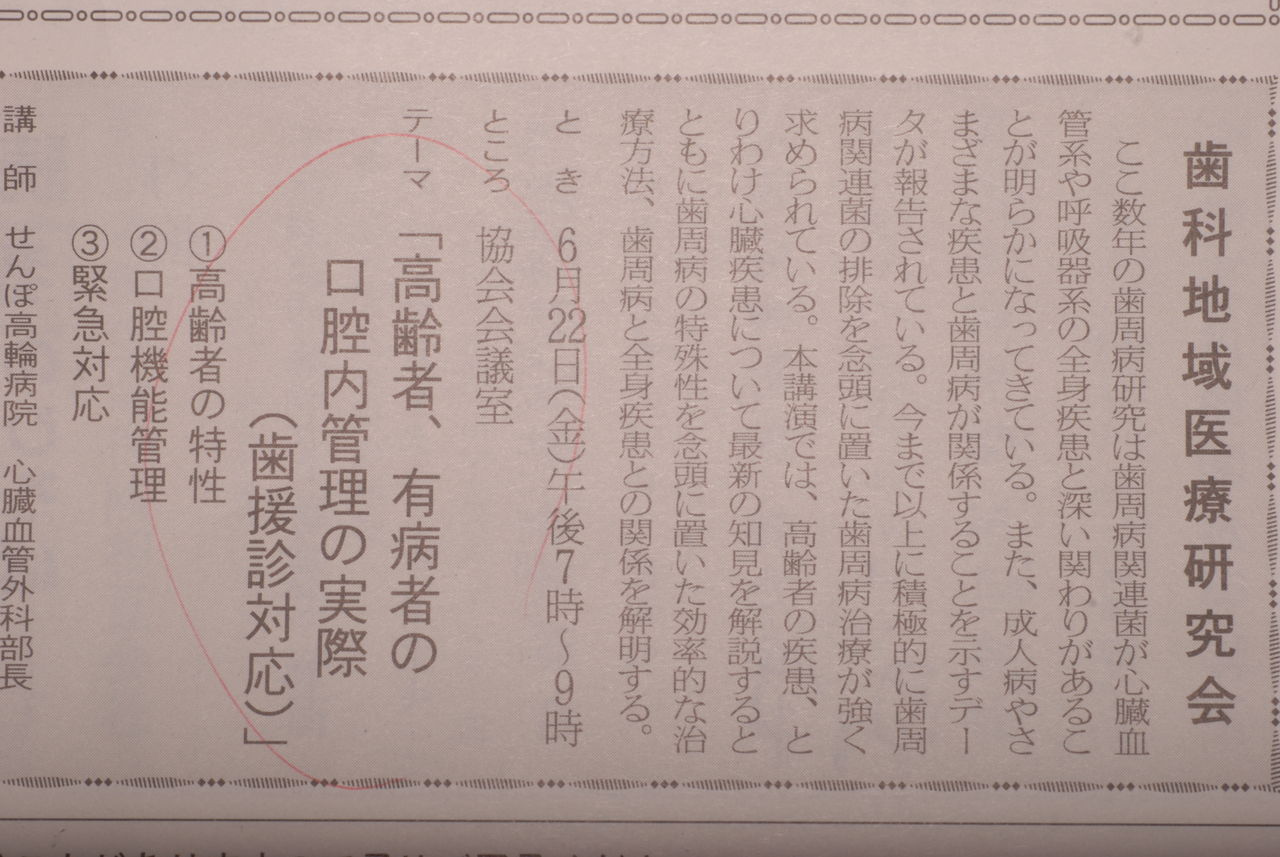 歯科地域医療研究会
ここ数年の歯周病研究は歯周病関連菌が心臓血
管系や呼吸器系の全身疾患と深い関わりがあるこ
とが明らかになってきている。また、成人病やさ
まざまな疾患と歯周病が関係することを示すデー
タが報告されている。今まで以上に積極的に歯周
病関連菌の排除を念頭に置いた歯周病治療が強く
求められている。本講演では、高齢者の疾患、と
りわけ心臓疾患について最新の知見を解説すると
ともに歯周病の特殊性を念頭に置いた効率的な治
療方法、歯周病と全身疾患との関係を解明する。
とき 6月22日(金)午後7時〜9時
ところ 協会会議室
テーマ 「高齢者、有病者の
口腔内管理の実際
(歯援診対応)」
①高齢者の特性
②口腔機能管理
③緊急対応
講師 せんぽ高輪病院 心臓血管外科部長